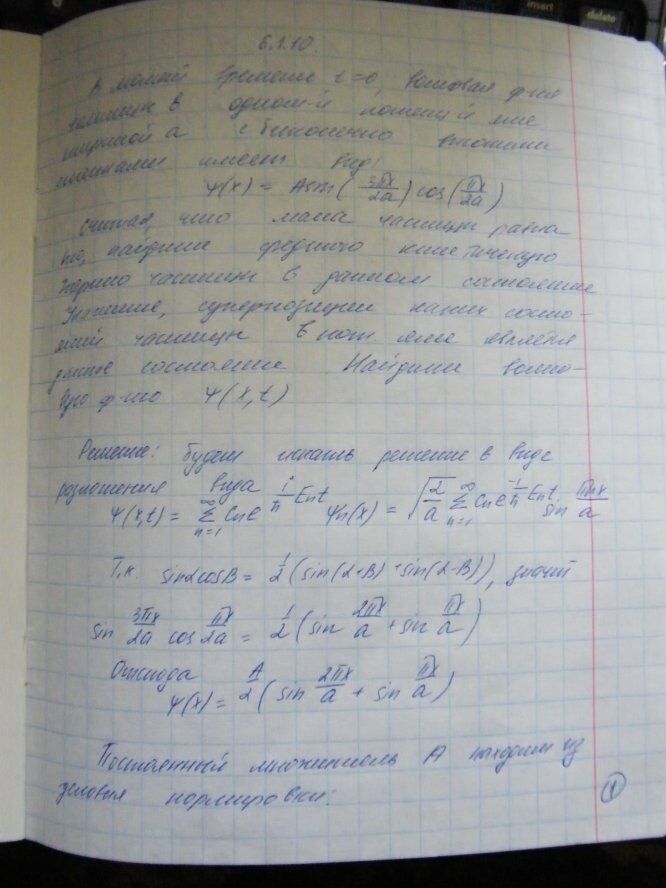 6.1.10.
В момент времени t=0, волновая ф-ия
частицы в одном-й потенц-й яме
шириной a с бесконечно высокими
стенками имеет вид:
ψ(x) = A sin(3πx/2a) cos(πx/2a)
Считая, что масса частицы равна
m₀, найдите среднюю кинетическую
энергию частицы в данном состоянии
Укажите, суперпозицией каких состо-
яний частицы в пот. яме является
данное состояние. Найдите волно-
вую ф-ию ψ(x,t)
Решение: будем искать решение в виде
разложения вида
ψ(x,t) = Σ_{n=1}^{∞} Cn e^{-i/ħ En t} ψn(x) = √(2/a) Σ_{n=1}^{∞} Cn e^{-i/ħ En t} sin πnx/a
Т.к. sinαcosβ = 1/2 (sin(α+β)+sin(α-β)), значит
sin 3πx/2a cos πx/2a = 1/2 (sin 2πx/a + sin πx/a)
Отсюда
ψ(x) = A/2 (sin 2πx/a + sin πx/a)
Постоянный множитель A находим из
условия нормировки:
1
insert
delete